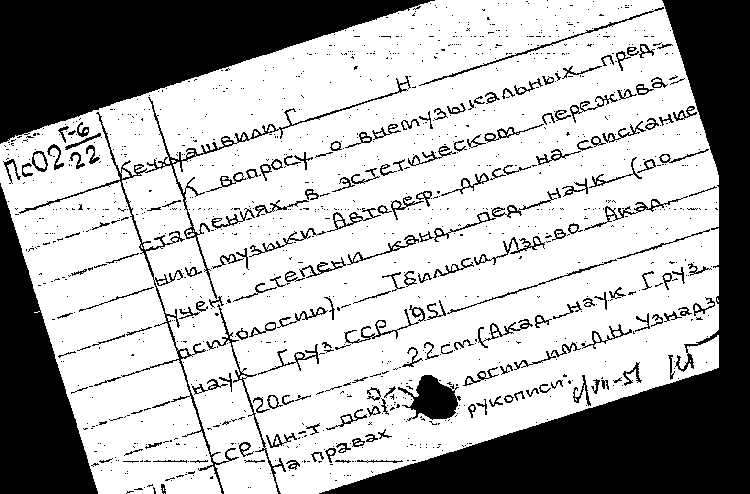 Пс02 Г-6/22
Кечхуашвили, Г Н
К вопросу о внемузыкальных пред-
ставлениях в эстетическом пережива-
нии музыки. Автореф. дисс. на соискание
учен. степени канд. пед. наук (по
психологии). Тбилиси, Изд-во Акад.
наук Груз. ССР, 1951.
20с. 22см. (Акад. наук Груз.
ССР Ин-т психологии им. Д.Н. Узнадзе
На правах рукописи.